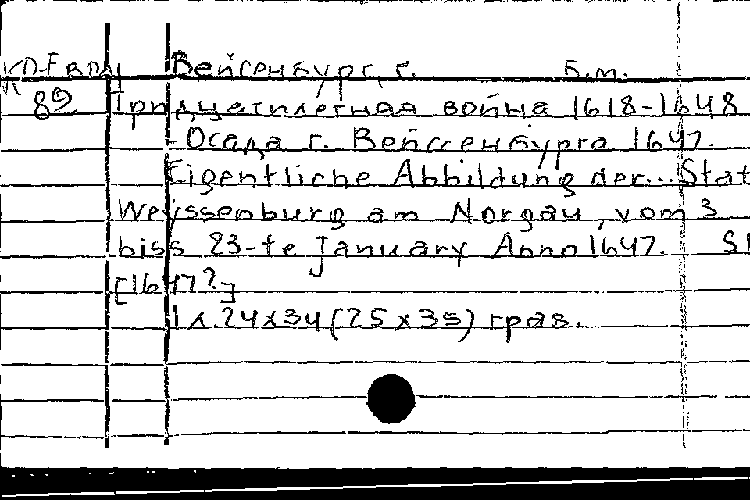 Вейсенбург, г. Б.м.
89 Тридцатилетняя война 1618-1648
-Осада г. Вейссенбурга 1647.
Eigentliche Abbildung der... Stat
Weyssenburg am Norgau, vom 3
biss 23-te January Anno 1647. Sl
[1647?]
1 л. 24x34 (25x35) грав.